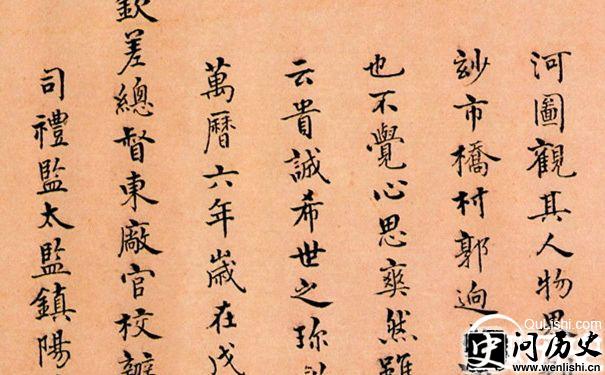 河圖觀其人物界
妙市橋村郭迥
也不覺心思爽然雖
云貴誠希世之珎
萬曆六年歲在戊
欽差總督東廠官校辦
司禮監太監鎮陽
QuLishi.com
问历史
www.wenlishi.cn